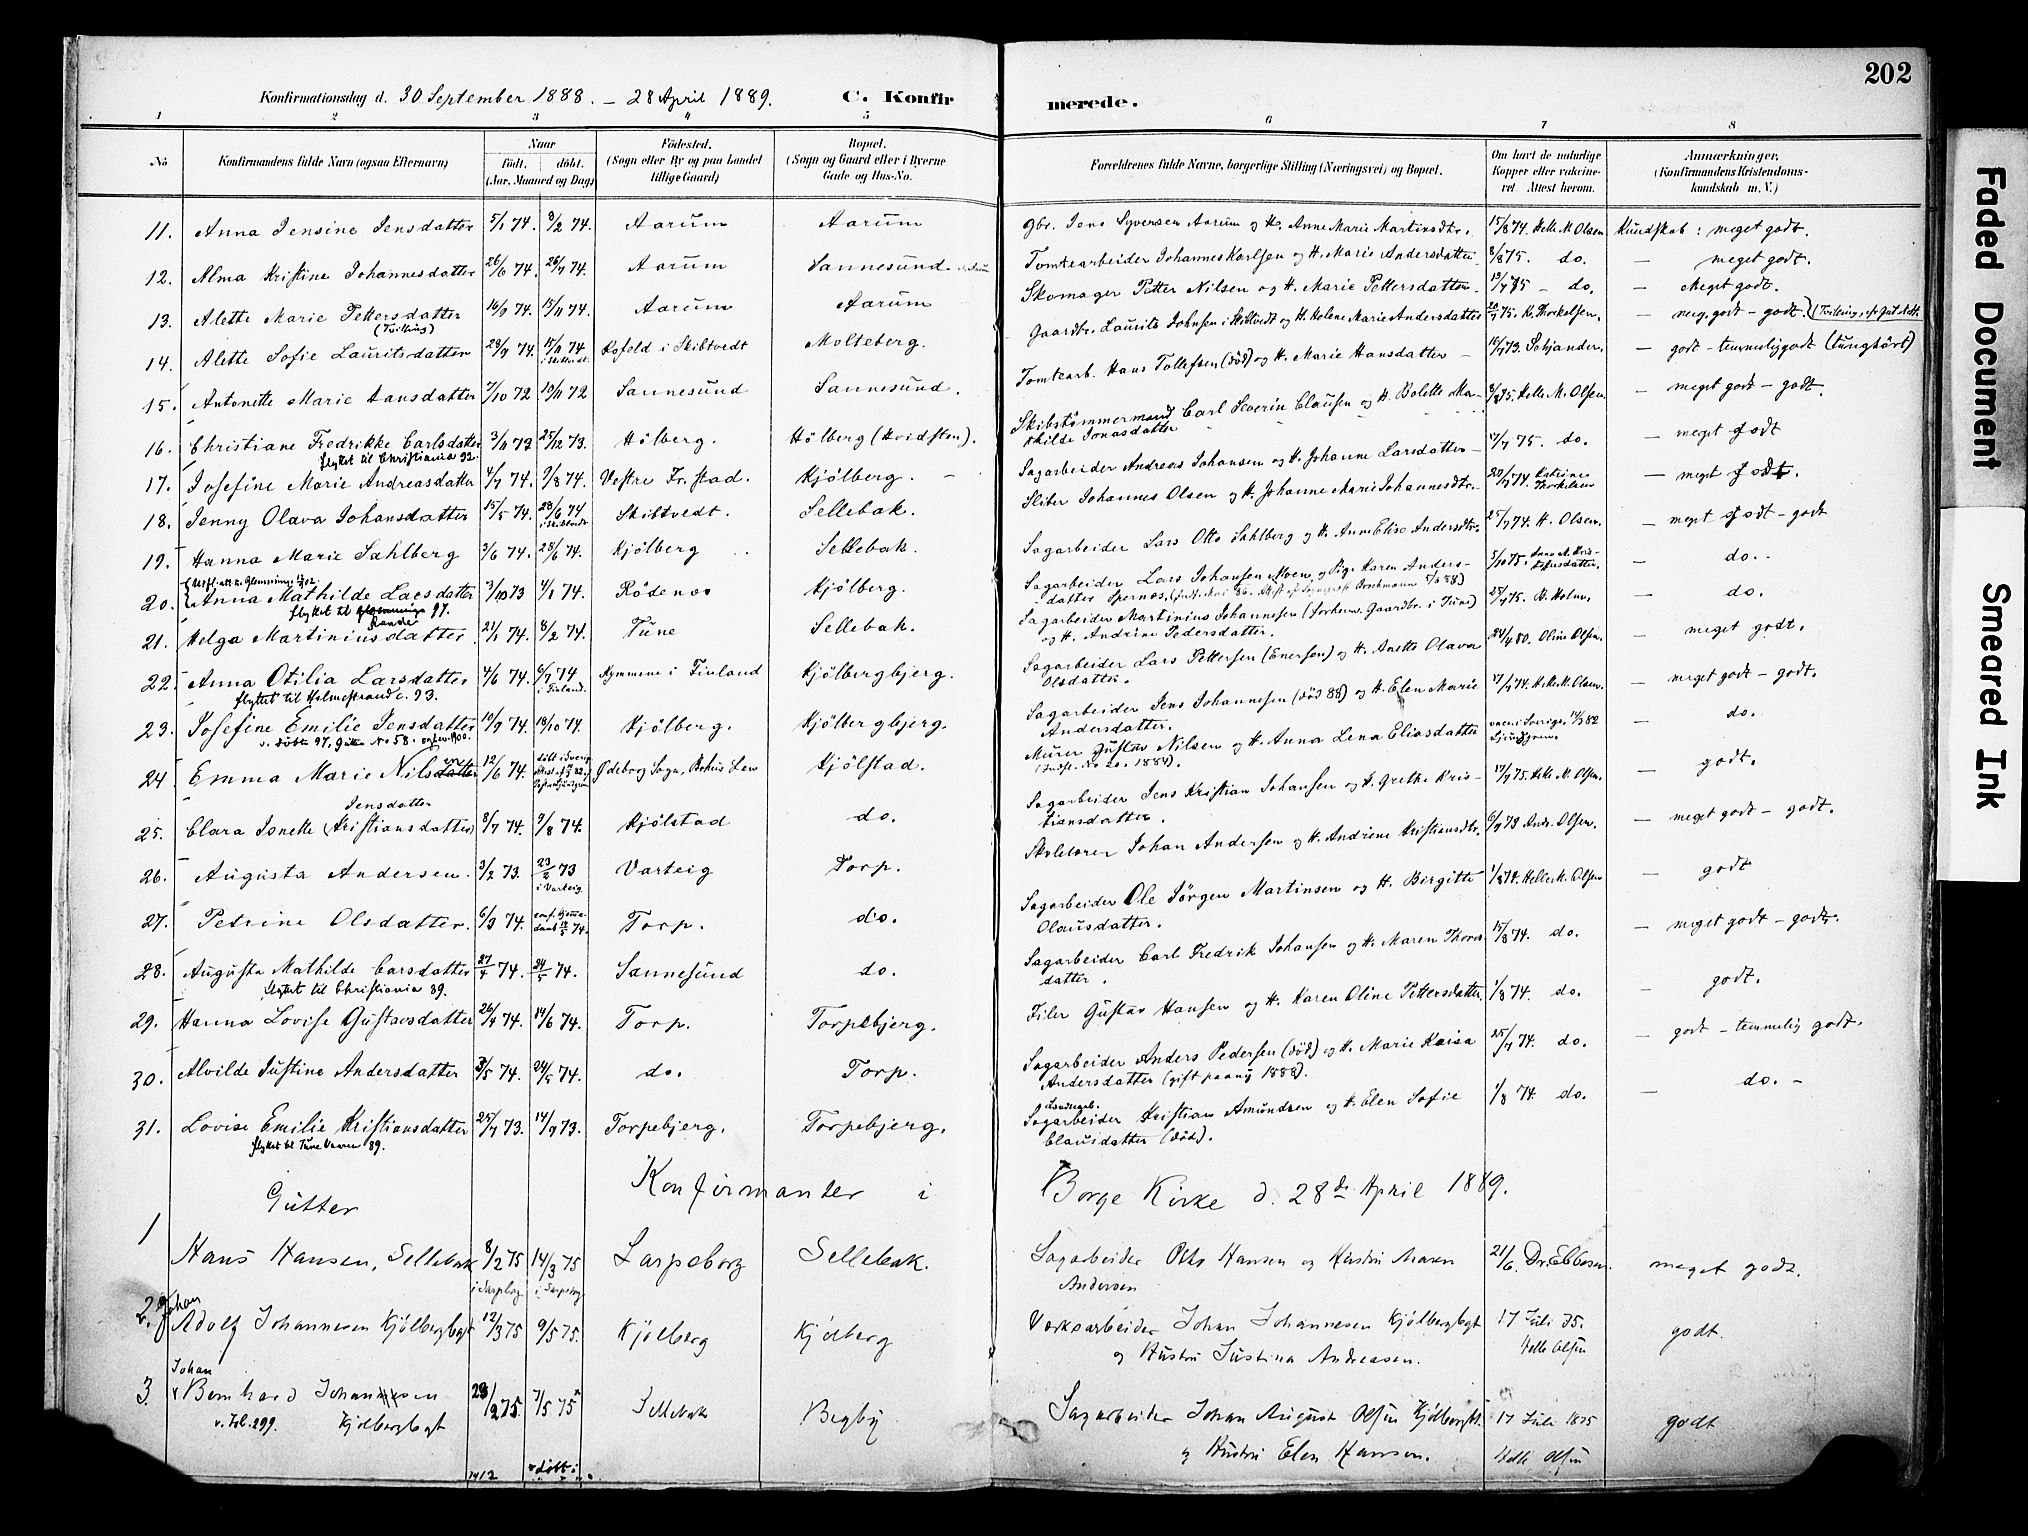 202
Konfirmationsdag d. 30 September 1888. – 28 April 1889. C. Konfirmerede.
1 2 3 4 5 6 7 8
No
Konfirmandens fulde Navn (ogsaa Efternavn)
Naar
födt. döbt.
(Aar, Maaned og Dag)
Födested.
(Sogn eller By og paa Landet tillige Gaard)
Bopæl.
(Sogn og Gaard eller i Byerne Gade og Hus-No.
Forældrenes fulde Navne, borgerlige Stilling (Næringsvei) og Bopæl.
Om havt de naturlige Kopper eller vakcineret. Attest herom.
Anmærkninger,
(Konfirmandens Kristendomskundskab m. V.)
11. Anna Jensine Jensdatter 5/1 74. 8/2 74. Aarum Aarum Gbr. Jens Syversen Aarum og H. Anne Marie Martinsdtr. 15/8 74. Helle M. Olsen Kundskab: meget godt.
12. Alma Kristine Johannesdatter 26/6 74. 26/7 74. Aarum Sannesund. Tomtearbeider Johannes Karlsen og H. Marie Andersdatter 8/8 75. do. – meget godt.
13. Alette Marie Pettersdatter 16/9 74. 15/11 74. Aarum Aarum Skomager Petter Nilsen og H. Marie Pettersdatter 19/7 75 – do. – Meget godt.
(Tvilling)
14. Alette Sofie Lauritsdatter 28/9 74. 15/11 74 Kofeld i Skibtvedt Molteberg. Gaardbr. Laurits Johnsen i Skibtvedt og H. Helene Marie Andersdatter 20/7 75. K. Thorkelsen. – meg. godt – godt.
15. Antonette Marie Hansdatter 7/10 72 10/11 72 Sannesund Sannesund. Tomtearb. Hans Tollefsen (död) og H. Marie Hansdatter – 16/7 73. Schjander. – godt – temmelig godt (tunghört)
16. Christiane Fredrikke Carlsdatter 3/11 73 25/12 73. Hölberg. Hölberg (Hvidsten). Skibstömmermand Carl Severin Clausen og H. Bolette Mathilde Jonasdatter 8/8 75. Helle M. Olsen. – meget godt – godt.
flyttet til Christiania 92.
17. Josefine Marie Andreasdatter 4/7 74. 9/8 74. Vestre Fr.stad. Kjölberg. – Sagarbeider Andreas Johansen og H. Johanne Larsdatter – 17/7 75. do. – meget godt
18. Jenny Olava Johansdatter 15/5 74. 28/6 74 Skibtvedt. Sellebak. Sliber Johannes Olsen og H. Johanne Marie Johannesdtr. 20/7 74. Katrine Thorkelsen – meget godt.
19. Hanna Marie Sahlberg 3/6 74. 28/6 74. Kjölberg Sellebak. Sagarbeider Lars Otto Sahlberg og H. Anne Elise Andersdtr. 25/7 74. H. Olsen. – meget godt – godt
20. Anna Mathilde Larsdatter 3/10 73 4/1 74. Rödenes Kjölberg. Sagarbeider Lars Johansen Moen og Pige Karen Andersdatter Spernes. 5/10 75. Anne M. Kristofersdatter. – do.
flyttet til
97.
21. Helga Martiniusdatter. 21/1 74. 8/2 74. Tune Sellebak. Sagarbeider Martinius Johannesen (forhenv. Gaardbr. i Tune) og H. Andrine Pedersdatter. 25/7 75. H. Holm. – do.
22. Anna Otilia Larsdatter 4/6 74 6/7 74 i Finland. Kymmene i Finland Kjölbergbjerg. Sagarbeider Lars Pettersen (Enersen) og H. Anette Olava Olsdatter. 24/4 80. Oline Olsen. – meget godt.
flyttet til Holmestrand c. 93.
23. Josefine Emilie Jensdatter 19/9 74. 18/10 74. Kjölberg. Kjölbergbjerg. Sagarbeider Jens Johannesen (död 88) og H. Elen Marie Andersdatter. 17/7 74. H. M. Olsen. – meget godt – godt.
24. Emma Marie Nilsdatter 12/6 74. Ödeborg Sogn, Bohus Len Kjölstad. Murer Gustav Nilsen og H. Anna Lena Eliasdatter – do.
(Indfl. No 20. 1884).
Jensdatter
25. Clara Jonette (Kristiansdatter) 8/7 74. 9/8 74. Kjölstad do. Sagarbeider Jens Kristian Johansen og H. Grethe Kristiansdatter. 17/7 75. Helle M. Olsen. – godt.
26. Augusta Andersen. 3/2 73. 23/2 73 i Varteig. Varteig Torp. Skolelærer Johan Andersen og H. Andrine Kristiansdtr. 6/7 73 Andr. Olsen. – meget godt – godt.
27. Petrine Olsdatter. 6/3 74. Torp. do. Sagarbeider Ole Jörgen Martinsen og H. Birgitte Olausdatter. 1/8 74. Helle M. Olsen – godt
28. Augusta Mathilde Carsdatter 27/4 74. 24/5 74. Sannesund do. Sagarbeider Carl Fredrik Johansen og H. Maren Thorsdatter. 15/8 74. do. – meget godt – godt.
flyttet til Christiania 89.
29. Hanna Lovise Gustavsdatter 26/4 74. 14/6 74. Torp. Torpebjerg. Filer Gustav Hansen og H. Karen Oline Pettersdatter. 1/8 74. do. – godt.
30. Alvilde Justine Andersdatter 3/5 74. 24/5 74. do. Torp. Sagarbeider Anders Pedersen (död) og H. Marie Kaisa Andersdatter (gift paany 1888). 25/7 74. do. – godt – temmelig godt.
31. Lovise Emilie Kristiansdatter 25/7 73. 14/9 73. Torpebjerg. Torpebjerg. Sagarbeider Kristian Amundsen og H. Elen Sofie Clausdatter (död). 1/8 74. do. – do. –
flyttet til Tune 89.
Gutter Konfirmanter i Borge Kirke d. 28de April 1889.
1 Hans Hansen, Sellebak 8/2 75 14/3 75 Sarpsborg Sellebak. Sagarbeider Otto Hansen og Hustru Maren Andersen 21/6. Dr. Ebbesen. meget godt.
i Sarpsborg i Sarpsborg
2. Johan Adolf Johannesen Kjölbergbgt 12/3 75 9/5 75. Kjölberg Kjölberg Værksarbeider Johan Johannesen Kjölbergbgt og Hustru Justina Andreasen. 17 Juli 75. Helle Olsen godt.
3. Johan Bernhard Johannesen Kjölbergbgt 28/2 75. 7/5 75 Sellebak Begby Sagarbeider Johan August Olsen Kjölbergbgt. og Hustru Elen Hansen. 17 Juli 1875 Helle Olsen godt
v. Fol. 299.
Faded Document
Smeared Ink